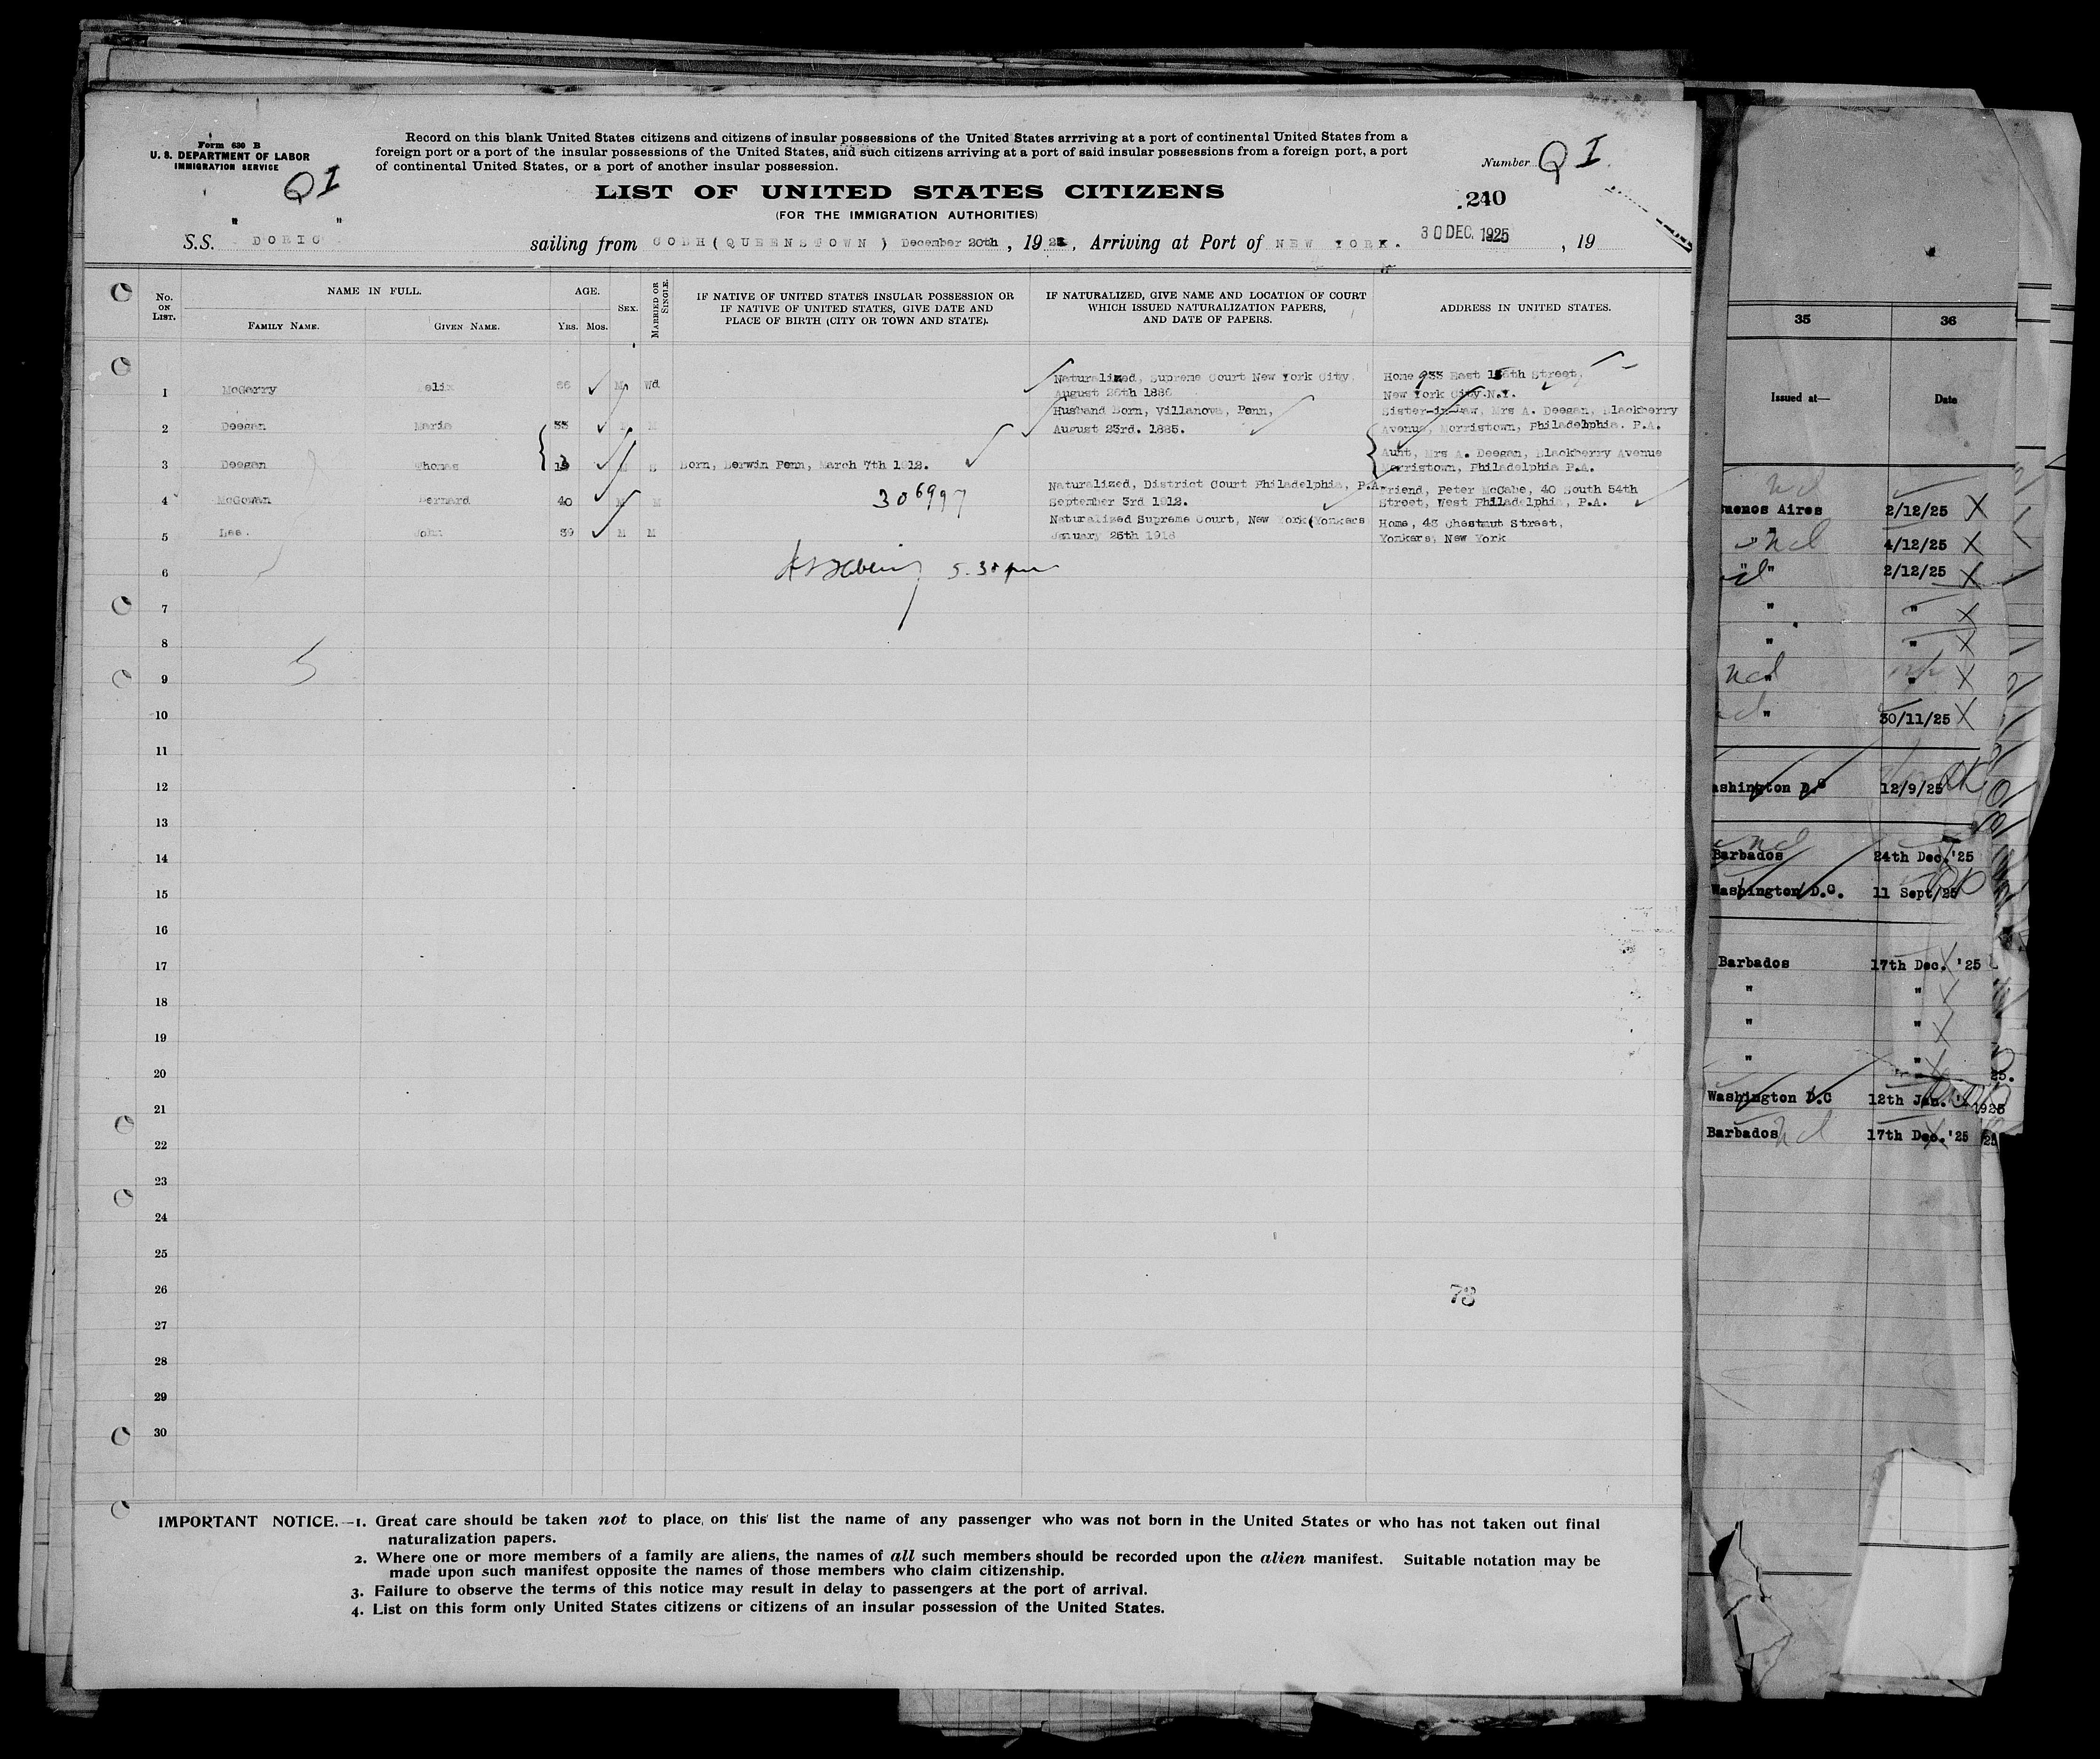 Form 630 B
U. S. DEPARTMENT OF LABOR
IMMIGRATION SERVICE
Q I
Record on this blank United States citizens and citizens of insular possessions of the United States arrriving at a port of continental United States from a
foreign port or a port of the insular possessions of the United States, and such citizens arriving at a port of said insular possessions from a foreign port, a port
of continental United States, or a port of another insular possession.
Number Q I
LIST OF UNITED STATES CITIZENS
(FOR THE IMMIGRATION AUTHORITIES)
240
S.S. " DORIC " sailing from COBH (QUEENSTOWN) December 20th, 1925, Arriving at Port of NEW YORK. 30 DEC. 1925, 19
No. ON LIST.
NAME IN FULL.
FAMILY NAME. GIVEN NAME.
AGE.
Yrs. Mos.
SEX.
MARRIED OR SINGLE.
IF NATIVE OF UNITED STATES INSULAR POSSESSION OR
IF NATIVE OF UNITED STATES, GIVE DATE AND
PLACE OF BIRTH (CITY OR TOWN AND STATE).
IF NATURALIZED, GIVE NAME AND LOCATION OF COURT
WHICH ISSUED NATURALIZATION PAPERS,
AND DATE OF PAPERS.
ADDRESS IN UNITED STATES.
1 McGarry elix 66 M Wd Naturalized, Supreme Court New York City, Home 933 East 156th Street,
August 26th 1886 New York City.N.Y.
2 Deegan Maria 33 M Husband Born, Villanova, Penn, Sister-in-Law, Mrs A. Deegan, Blackberry
August 23rd. 1885. Avenue, Morristown, Philadelphia. P.A.
3 Deegan Thomas 13 M S Born, Berwin Penn, March 7th 1912. Aunt, Mrs A. Deegan, Blackberry Avenue
Morristown, Philadelphia P.A.
4 McGowan Bernard 40 M M 306997 Naturalized, District Court Philadelphia, P.A. Friend, Peter McCabe, 40 South 54th
September 3rd 1912. Street, West Philadelphia, P.A.
5 Lee. John 39 M M Naturalized Supreme Court, New York (Yonkers Home, 48 Chestnut Street,
January 25th 1918 Yonkers, New York
6 5.30 pm
7
8
9
5
10
11
12
13
14
15
16
17
18
19
20
21
22
23
24
25
26
73
27
28
29
30
IMPORTANT NOTICE.—1. Great care should be taken not to place, on this list the name of any passenger who was not born in the United States or who has not taken out final
naturalization papers.
2. Where one or more members of a family are aliens, the names of all such members should be recorded upon the alien manifest. Suitable notation may be
made upon such manifest opposite the names of those members who claim citizenship.
3. Failure to observe the terms of this notice may result in delay to passengers at the port of arrival.
4. List on this form only United States citizens or citizens of an insular possession of the United States.
35 36
Issued at— Date
ncl
uenos Aires 2/12/25 X
" ncl 4/12/25 X
" 2/12/25 X
" " X
" " X
ncl " " X
" 30/11/25 X
ashington D.C 12/9/25
ncl
Barbados 24th Dec.'25
Washington D.C. 11 Sept/25
Barbados 17th Dec. '25
" "
" " X
" "
25.
Washington D.C 12th Jan. 1925
Barbados ncl 17th Dec.'25 25